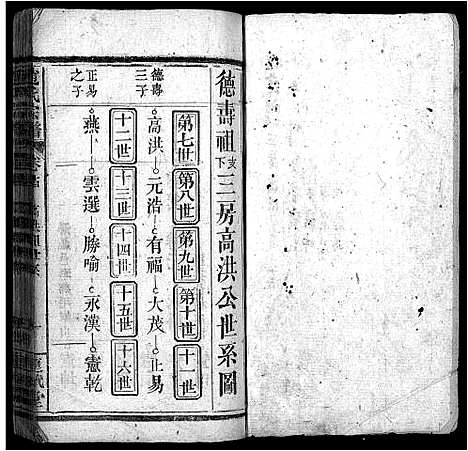 德壽祖支下三房高洪公世系圖
第七世 第八世 第九世 第十世 十一世
德壽三子 高洪 元浩 有福 大茂 正易
十二世 十三世 十四世 十五世 十六世
正易之子 燕 雲選 勝喻 永漢 憲乾